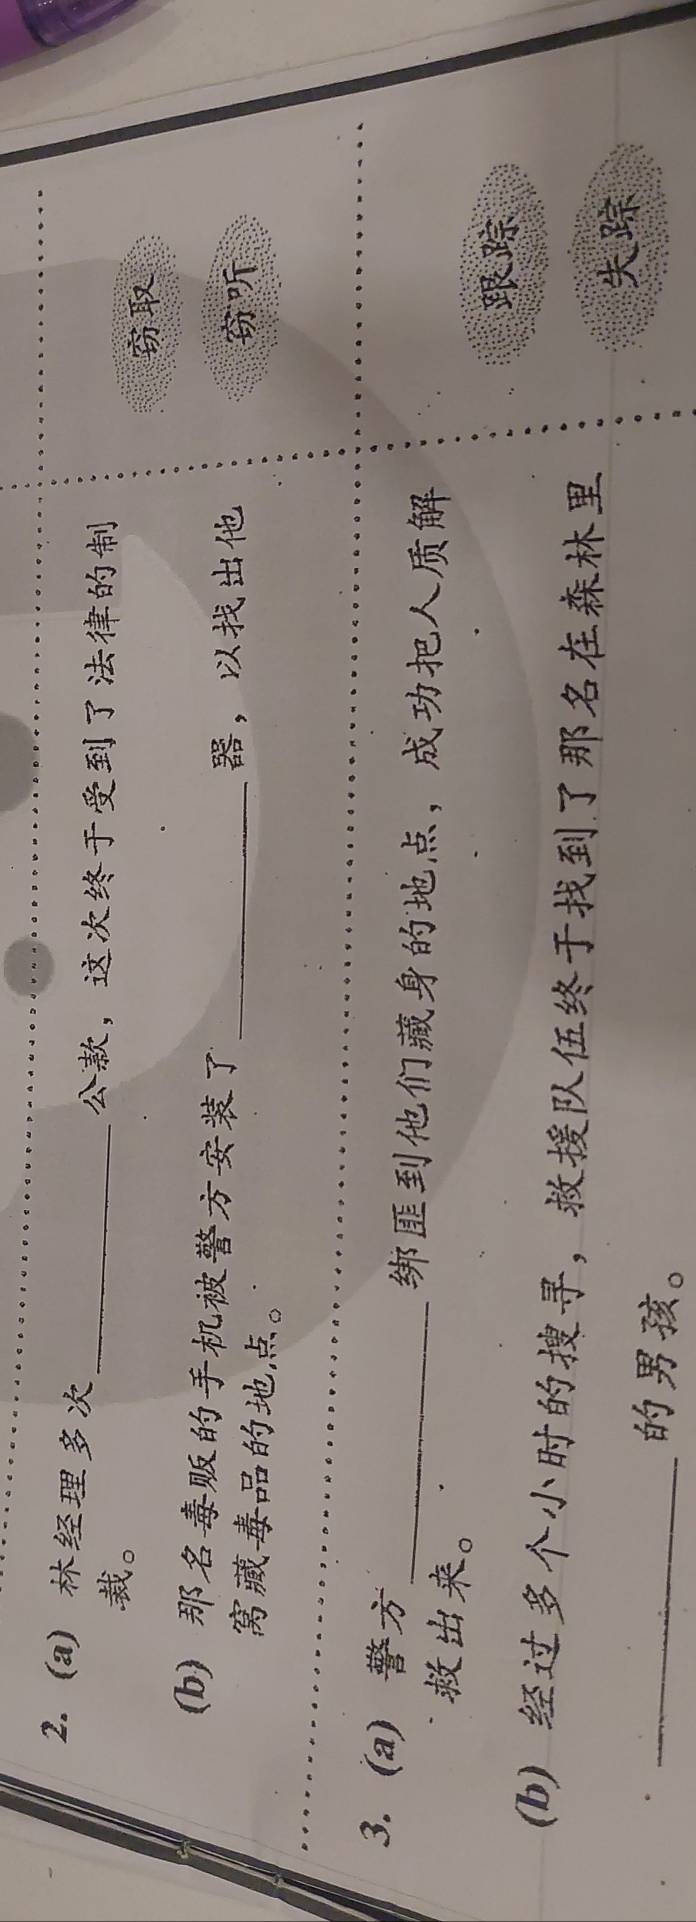 2. (a) 林经理多次________公款，这次终于受到了法律的制
裁。
窃取
(b) 那名毒贩的手机被警方安装了________器，以找出他
窝藏毒品的地点。
窃听
3. (a) 警方________绑匪到他们藏身的地点，成功把人质解
救出来。
跟踪
(b) 经过多个小时的搜寻，救援队伍终于找到了那名在森林里
________的男孩。
失踪